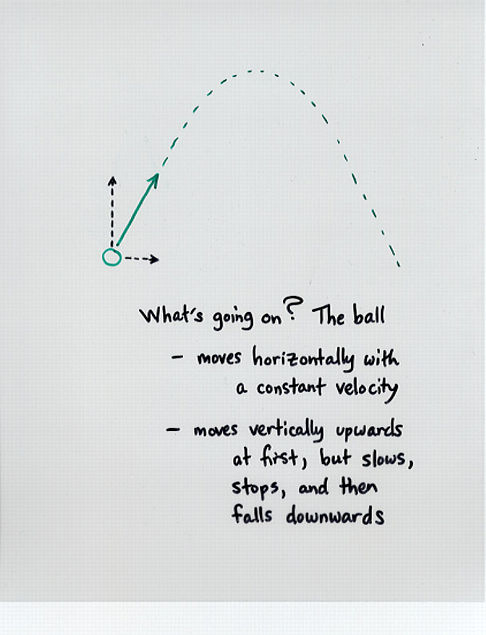 What's going on? The ball
- moves horizontally with
a constant velocity
- moves vertically upwards
at first, but slows,
stops, and then
falls downwards